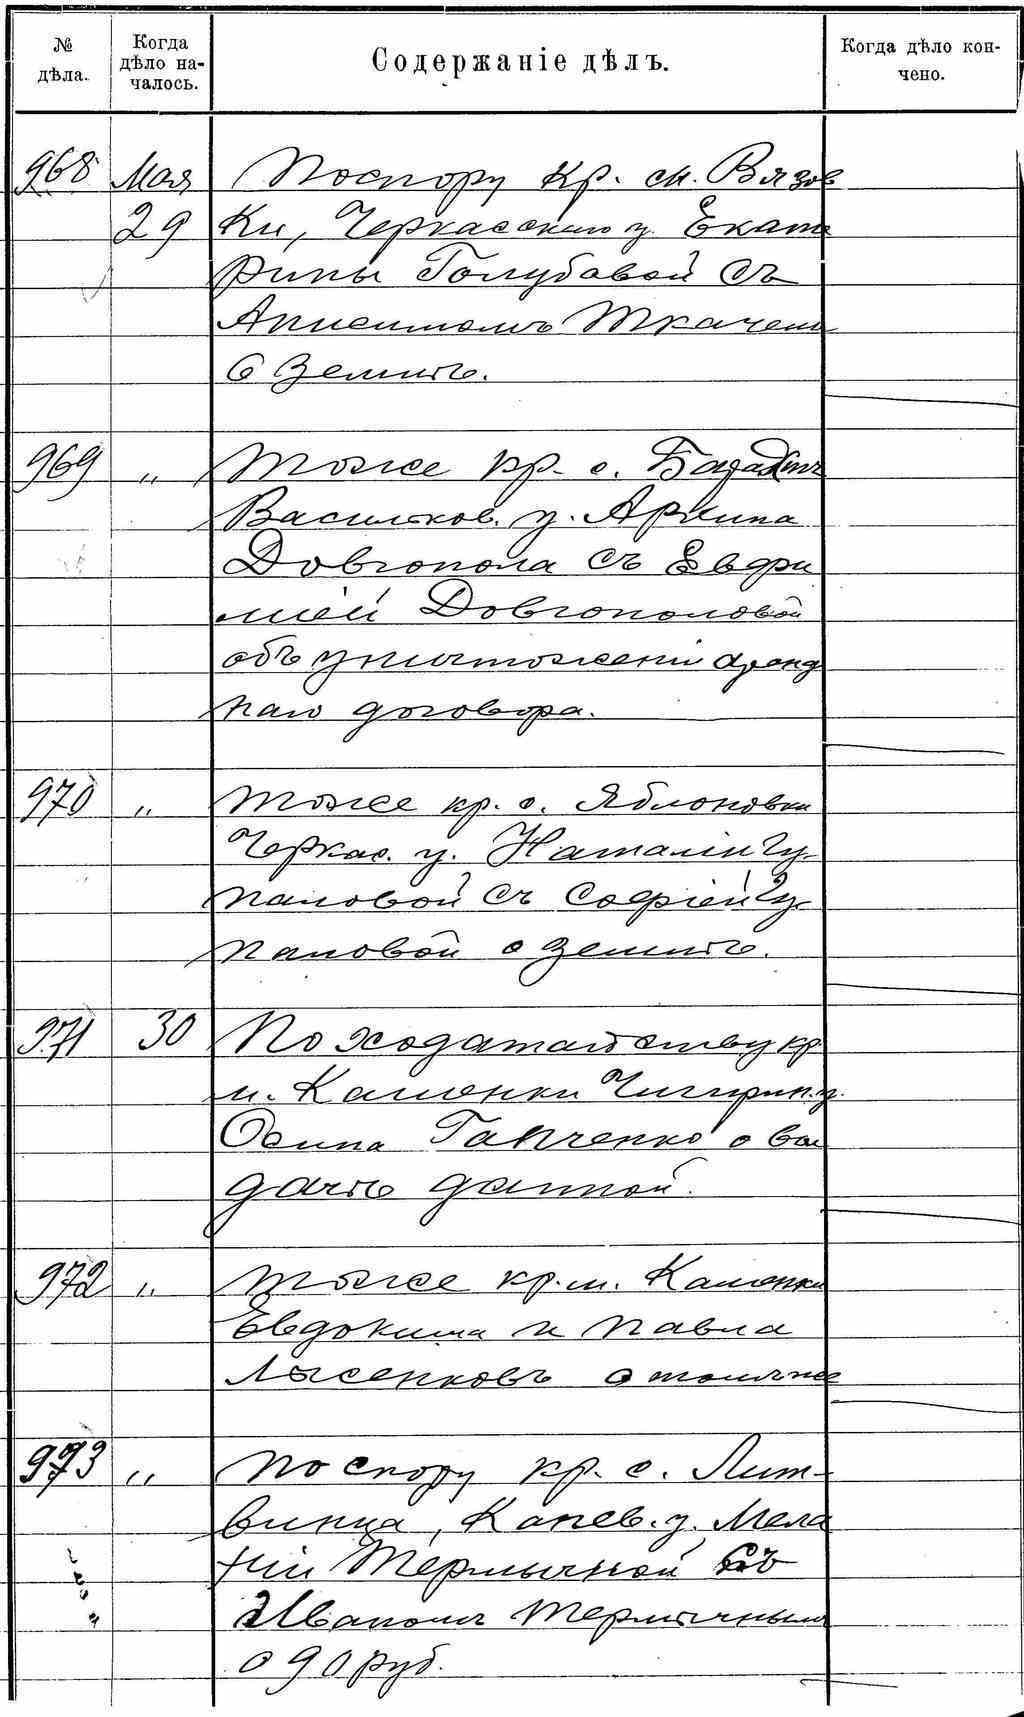 № дѣла.
Когда дѣло на-
чалось.
Содержаніе дѣлъ.
Когда дѣло кон-
чено.
968 Мая По спору кр. м. Вязов
29 ки, Черкасскаго у. Екате
рины Голубовой съ
Анисимомъ Ткаченко
о землѣ.
969 „ Тоже кр. с.
Васильков. у. Архипа
Довгопола съ Евфи
міей Довгополовой
объ уничтоженіи аренд
наго договора.
970 „ Тоже кр. с. Яблоновки
Черкас. у. Наталіи Чу
паловой съ Софіей Чу
паловой о землѣ.
971 30 По ходатайству кр
м. Каменки Чигирин. у.
Осипа Гапченко о вы
дачѣ данной.
972 „ Тоже кр. м. Каменки
Евдокима и Павла
Лысенковъ о томъ же
973 „ По спору кр. с. Лит-
винца, Канев. у. Мела
ніи Термычной съ
Иваномъ Термычнымъ
о 90 руб.